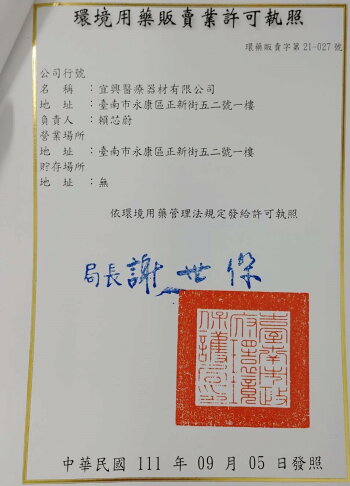 環境用藥販賣業許可執照
環藥販賣字第21-027號
公司行號
名 稱 ：宜興醫療器材有限公司
地 址 ：臺南市永康區正新街五二號一樓
負責人 ：賴芯蔚
營業場所
地 址 ：臺南市永康區正新街五二號一樓
貯存場所
地 址 ：無
依環境用藥管理法規定發給許可執照
局長 謝世傑
臺南市政府環境保護局印
中華民國 111 年 09 月 05 日發照